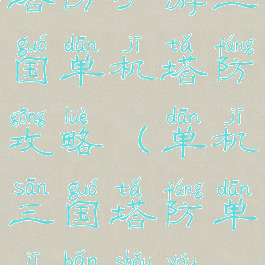 guó dān jī tǎ fáng
国单机塔防
gōng lüè dān jī
攻略(单机
sān guó tǎ fáng dān
三国塔防单